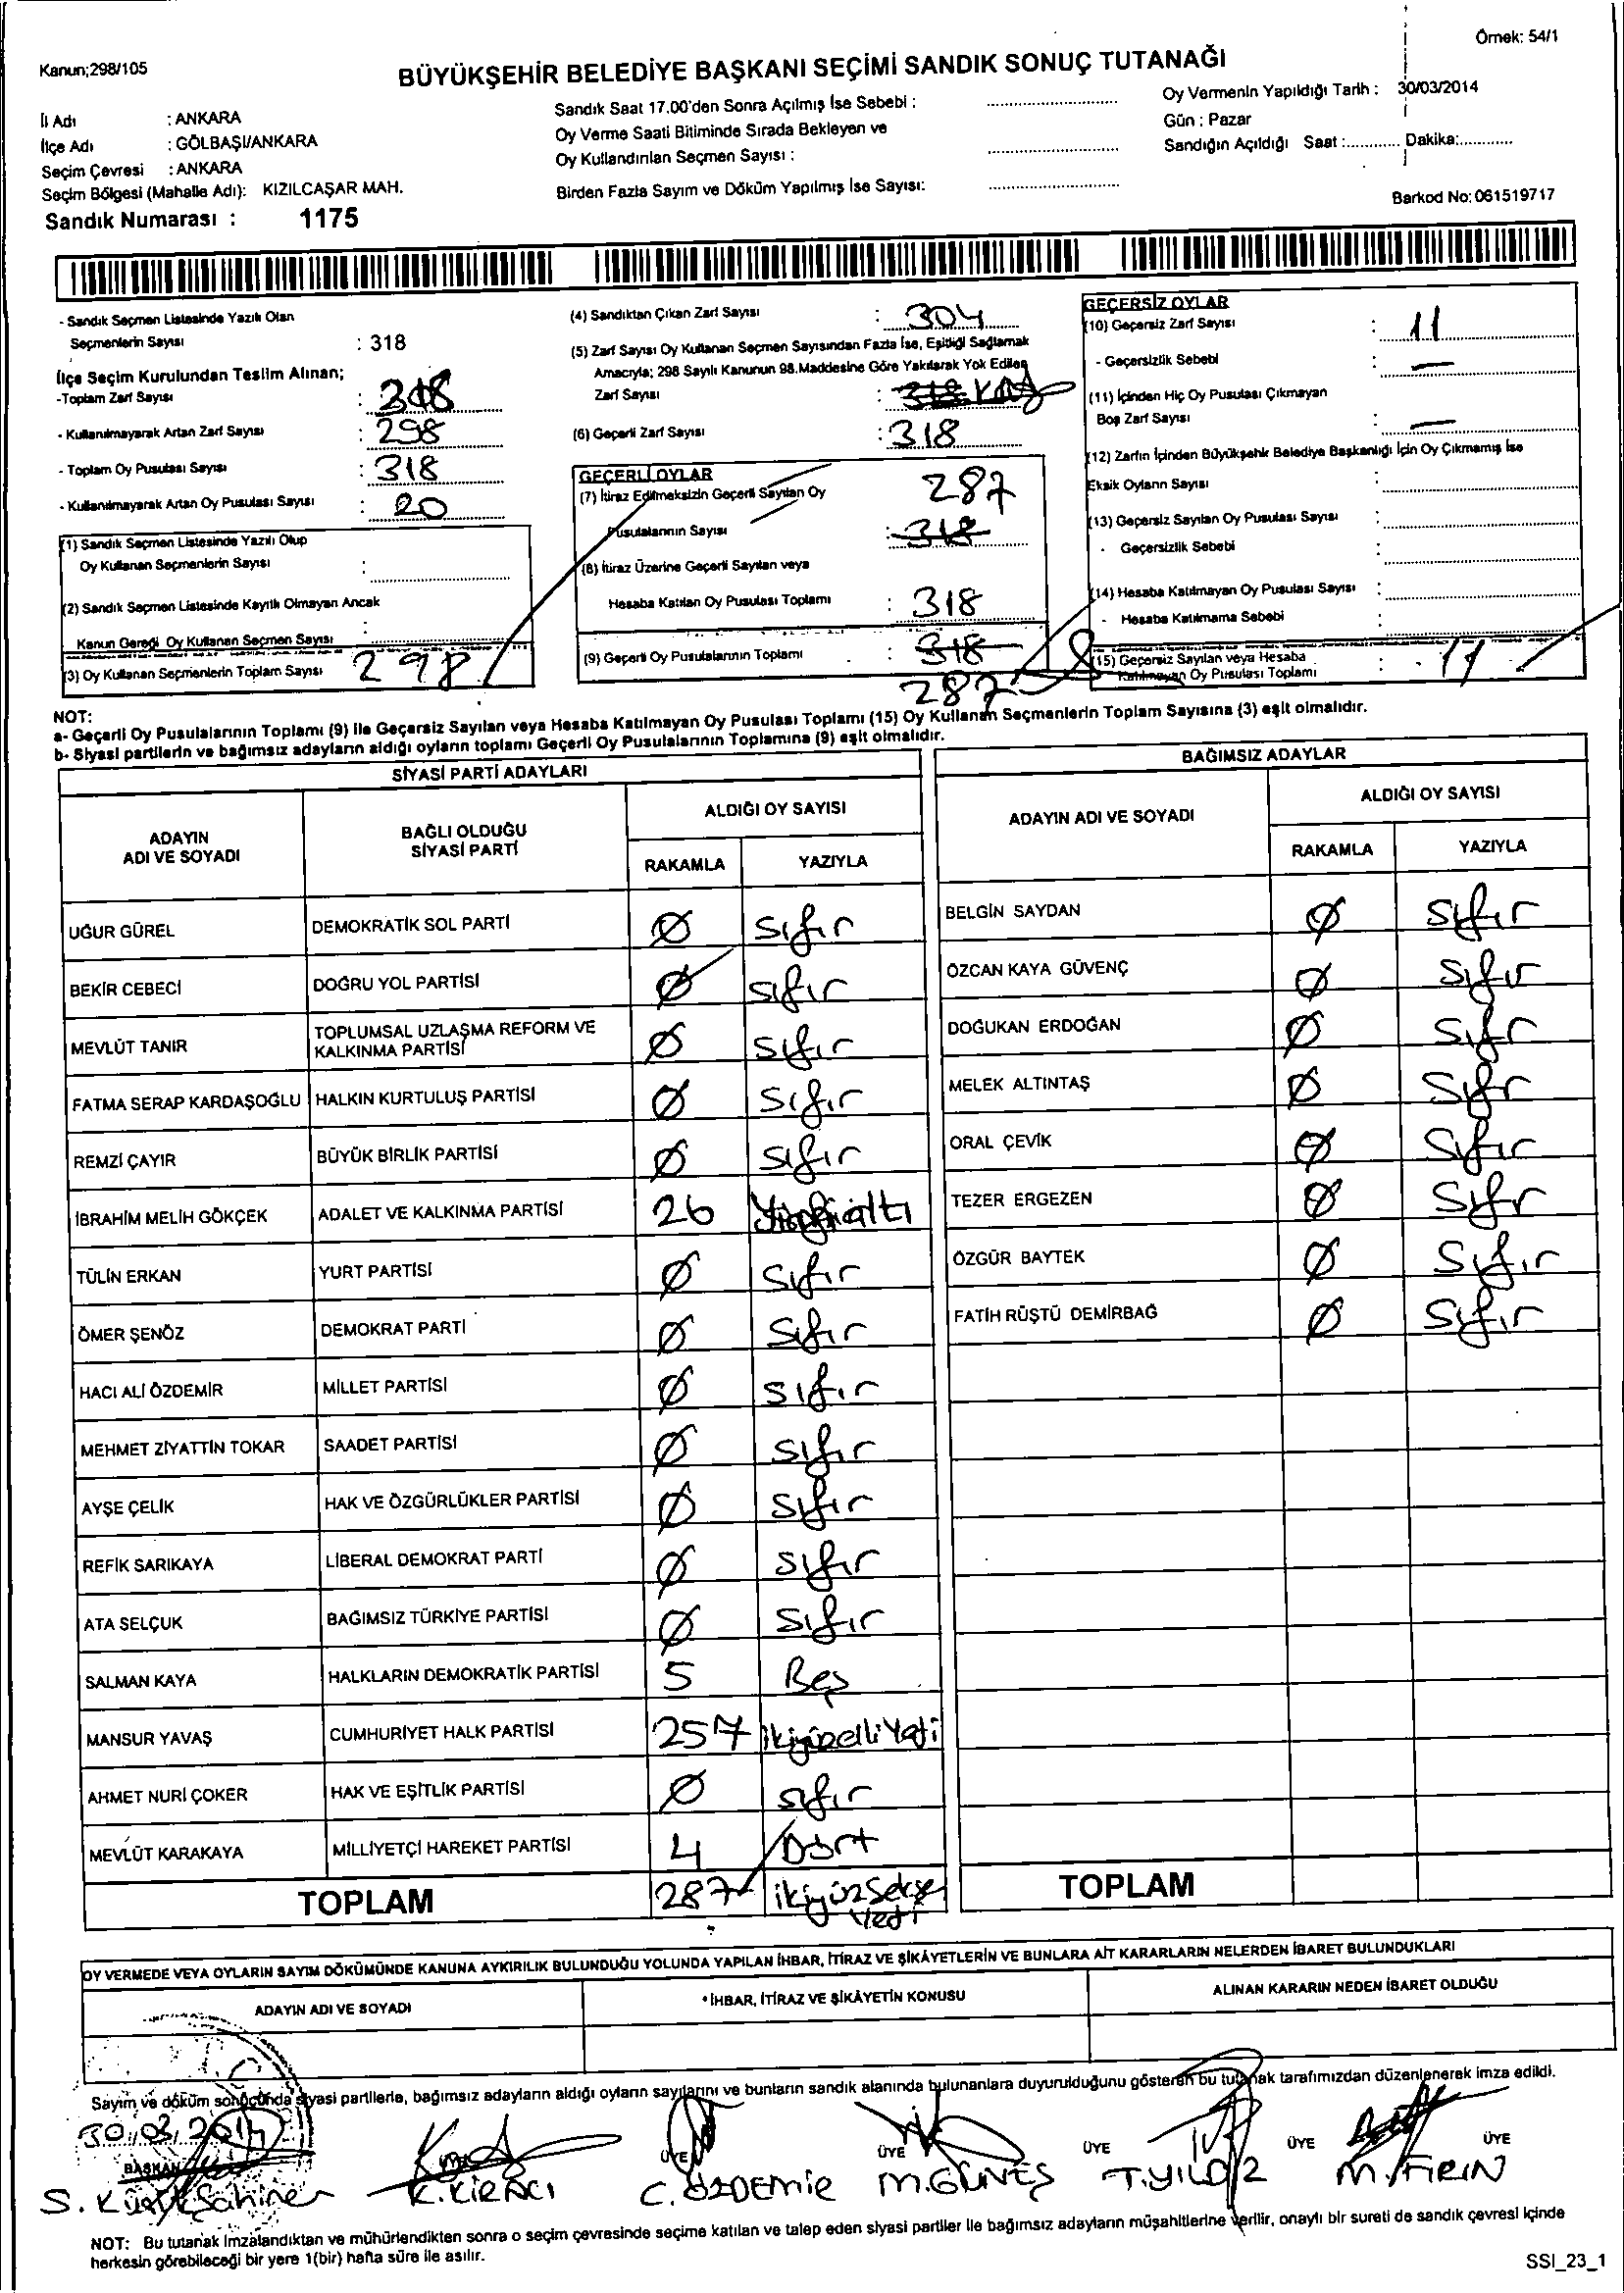 Örnek: 54/1
Kanun;298/105
BÜYÜKŞEHİR BELEDİYE BAŞKANI SEÇİMİ SANDIK SONUÇ TUTANAĞI
İl Adı : ANKARA
İlçe Adı : GÖLBAŞI/ANKARA
Seçim Çevresi : ANKARA
Seçim Bölgesi (Mahalle Adı): KIZILCAŞAR MAH.
Sandık Numarası : 1175
Sandık Saat 17.00'den Sonra Açılmış İse Sebebi :
Oy Verme Saati Bitiminde Sırada Bekleyen ve
Oy Kullandırılan Seçmen Sayısı :
Birden Fazla Sayım ve Döküm Yapılmış İse Sayısı:
Oy Vermenin Yapıldığı Tarih : 30/03/2014
Gün : Pazar
Sandığın Açıldığı Saat :............ Dakika:............
Barkod No: 061519717
- Sandık Seçmen Listesinde Yazılı Olan
Seçmenlerin Sayısı : 318
İlçe Seçim Kurulundan Teslim Alınan;
-Toplam Zarf Sayısı : 318
- Kullanılmayarak Artan Zarf Sayısı : 298
- Toplam Oy Pusulası Sayısı : 318
- Kullanılmayarak Artan Oy Pusulası Sayısı : 20
(1) Sandık Seçmen Listesinde Yazılı Olup
Oy Kullanan Seçmenlerin Sayısı :
(2) Sandık Seçmen Listesinde Kayıtlı Olmayan Ancak
Kanun Gereği Oy Kullanan Seçmen Sayısı :
(3) Oy Kullanan Seçmenlerin Toplam Sayısı 298
(4) Sandıktan Çıkan Zarf Sayısı : 304
(5) Zarf Sayısı Oy Kullanan Seçmen Sayısından Fazla İse, Eşitliği Sağlamak
Amacıyla; 298 Sayılı Kanunun 98.Maddesine Göre Yakılarak Yok Edilen
Zarf Sayısı :
(6) Geçerli Zarf Sayısı : 318
GEÇERLİ OYLAR
(7) İtiraz Edilmeksizin Geçerli Sayılan Oy 287
Pusulalarının Sayısı : 318
(8) İtiraz Üzerine Geçerli Sayılan veya
Hesaba Katılan Oy Pusulası Toplamı : 318
(9) Geçerli Oy Pusulalarının Toplamı : 318
287
GEÇERSİZ OYLAR
(10) Geçersiz Zarf Sayısı : 11
- Geçersizlik Sebebi : —
(11) İçinden Hiç Oy Pusulası Çıkmayan
Boş Zarf Sayısı : —
(12) Zarfın İçinden Büyükşehir Belediye Başkanlığı İçin Oy Çıkmamış İse
Eksik Oyların Sayısı :
(13) Geçersiz Sayılan Oy Pusulası Sayısı :
- Geçersizlik Sebebi :
(14) Hesaba Katılmayan Oy Pusulası Sayısı :
- Hesaba Katılmama Sebebi :
(15) Geçersiz Sayılan veya Hesaba
Katılmayan Oy Pusulası Toplamı : 11
NOT:
a- Geçerli Oy Pusulalarının Toplamı (9) ile Geçersiz Sayılan veya Hesaba Katılmayan Oy Pusulası Toplamı (15) Oy Kullanan Seçmenlerin Toplam Sayısına (3) eşit olmalıdır.
b- Siyasi partilerin ve bağımsız adayların aldığı oyların toplamı Geçerli Oy Pusulalarının Toplamına (9) eşit olmalıdır.
SİYASİ PARTİ ADAYLARI
ADAYIN ADI VE SOYADI
BAĞLI OLDUĞU SİYASİ PARTİ
ALDIĞI OY SAYISI
RAKAMLA YAZIYLA
UĞUR GÜREL DEMOKRATİK SOL PARTİ Ø Sıfır
BEKİR CEBECİ DOĞRU YOL PARTİSİ Ø Sıfır
MEVLÜT TANIR TOPLUMSAL UZLAŞMA REFORM VE KALKINMA PARTİSİ Ø Sıfır
FATMA SERAP KARDAŞOĞLU HALKIN KURTULUŞ PARTİSİ Ø Sıfır
REMZİ ÇAYIR BÜYÜK BİRLİK PARTİSİ Ø Sıfır
İBRAHİM MELİH GÖKÇEK ADALET VE KALKINMA PARTİSİ 26
TÜLİN ERKAN YURT PARTİSİ Ø Sıfır
ÖMER ŞENÖZ DEMOKRAT PARTİ Ø Sıfır
HACI ALİ ÖZDEMİR MİLLET PARTİSİ Ø Sıfır
MEHMET ZİYATTİN TOKAR SAADET PARTİSİ Ø Sıfır
AYŞE ÇELİK HAK VE ÖZGÜRLÜKLER PARTİSİ Ø Sıfır
REFİK SARIKAYA LİBERAL DEMOKRAT PARTİ Ø Sıfır
ATA SELÇUK BAĞIMSIZ TÜRKİYE PARTİSİ Ø Sıfır
SALMAN KAYA HALKLARIN DEMOKRATİK PARTİSİ 5 Beş
MANSUR YAVAŞ CUMHURİYET HALK PARTİSİ 257 ikiyüzelliYedi
AHMET NURİ ÇOKER HAK VE EŞİTLİK PARTİSİ Ø sıfır
MEVLÜT KARAKAYA MİLLİYETÇİ HAREKET PARTİSİ 4 Dört
TOPLAM 287 ikiyüzSeksen Yedi
BAĞIMSIZ ADAYLAR
ADAYIN ADI VE SOYADI
ALDIĞI OY SAYISI
RAKAMLA YAZIYLA
BELGİN SAYDAN Ø Sıfır
ÖZCAN KAYA GÜVENÇ Ø Sıfır
DOĞUKAN ERDOĞAN Ø Sıfır
MELEK ALTINTAŞ Ø Sıfır
ORAL ÇEVİK Ø Sıfır
TEZER ERGEZEN Ø Sıfır
ÖZGÜR BAYTEK Ø Sıfır
FATİH RÜŞTÜ DEMİRBAĞ Ø Sıfır
TOPLAM
OY VERMEDE VEYA OYLARIN SAYIM DÖKÜMÜNDE KANUNA AYKIRILIK BULUNDUĞU YOLUNDA YAPILAN İHBAR, İTİRAZ VE ŞİKÂYETLERİN VE BUNLARA AİT KARARLARIN NELERDEN İBARET BULUNDUKLARI
ADAYIN ADI VE SOYADI
İHBAR, İTİRAZ VE ŞİKÂYETİN KONUSU
ALINAN KARARIN NEDEN İBARET OLDUĞU
Sayım ve döküm sonucunda siyasi partilerle, bağımsız adayların aldığı oyların sayılarını ve bunların sandık alanında bulunanlara duyurulduğunu gösteren bu tutanak tarafımızdan düzenlenerek imza edildi.
30.03.2014
BAŞKAN ÜYE ÜYE ÜYE ÜYE ÜYE
S. KüçükŞahiner K.KİRACI C.ÖZDEMİR M.GÜNEŞ T.YILDIZ M.FIRIN
NOT: Bu tutanak imzalandıktan ve mühürlendikten sonra o seçim çevresinde seçime katılan ve talep eden siyasi partiler ile bağımsız adayların müşahitlerine verilir, onaylı bir sureti de sandık çevresi içinde
herkesin görebileceği bir yere 1(bir) hafta süre ile asılır.
SSI_23_1